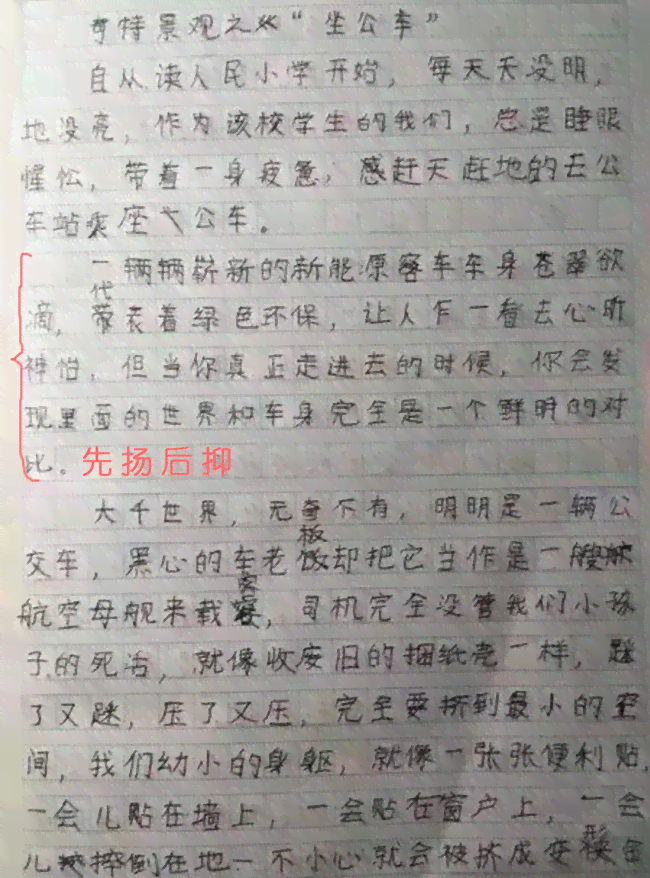 奇特景观之从“坐公车”
自从读人民小学开始，每天天没明，
地没亮，作为该校学生的我们，总是睡眼
惺忪，带着一身疲惫，感赶天赶地的去公
车站乘座大公车。
一辆辆崭新的新能原客车车身苍翠欲
滴，代表着绿色环保，让人乍一看去心旷
神怡，但当你真正走进去的时候，你会发
现里面的世界和车身完全是一个鲜明的对
比。先扬后抑
大千世界，无奇不有，明明是一辆公
交车，黑心的车老板却把它当作是一艘
航空母舰来载客，司机完全没管我们小孩
子的死活，就像收废旧的捆纸壳一样，跐
了又跐，压了又压，完全要挤到最小的空
间，我们幼小的身躯，就像一张张便利贴，
一会儿贴在墙上，一会贴在窗户上，一会
儿摔倒在地一不小心就会被挤成变形金